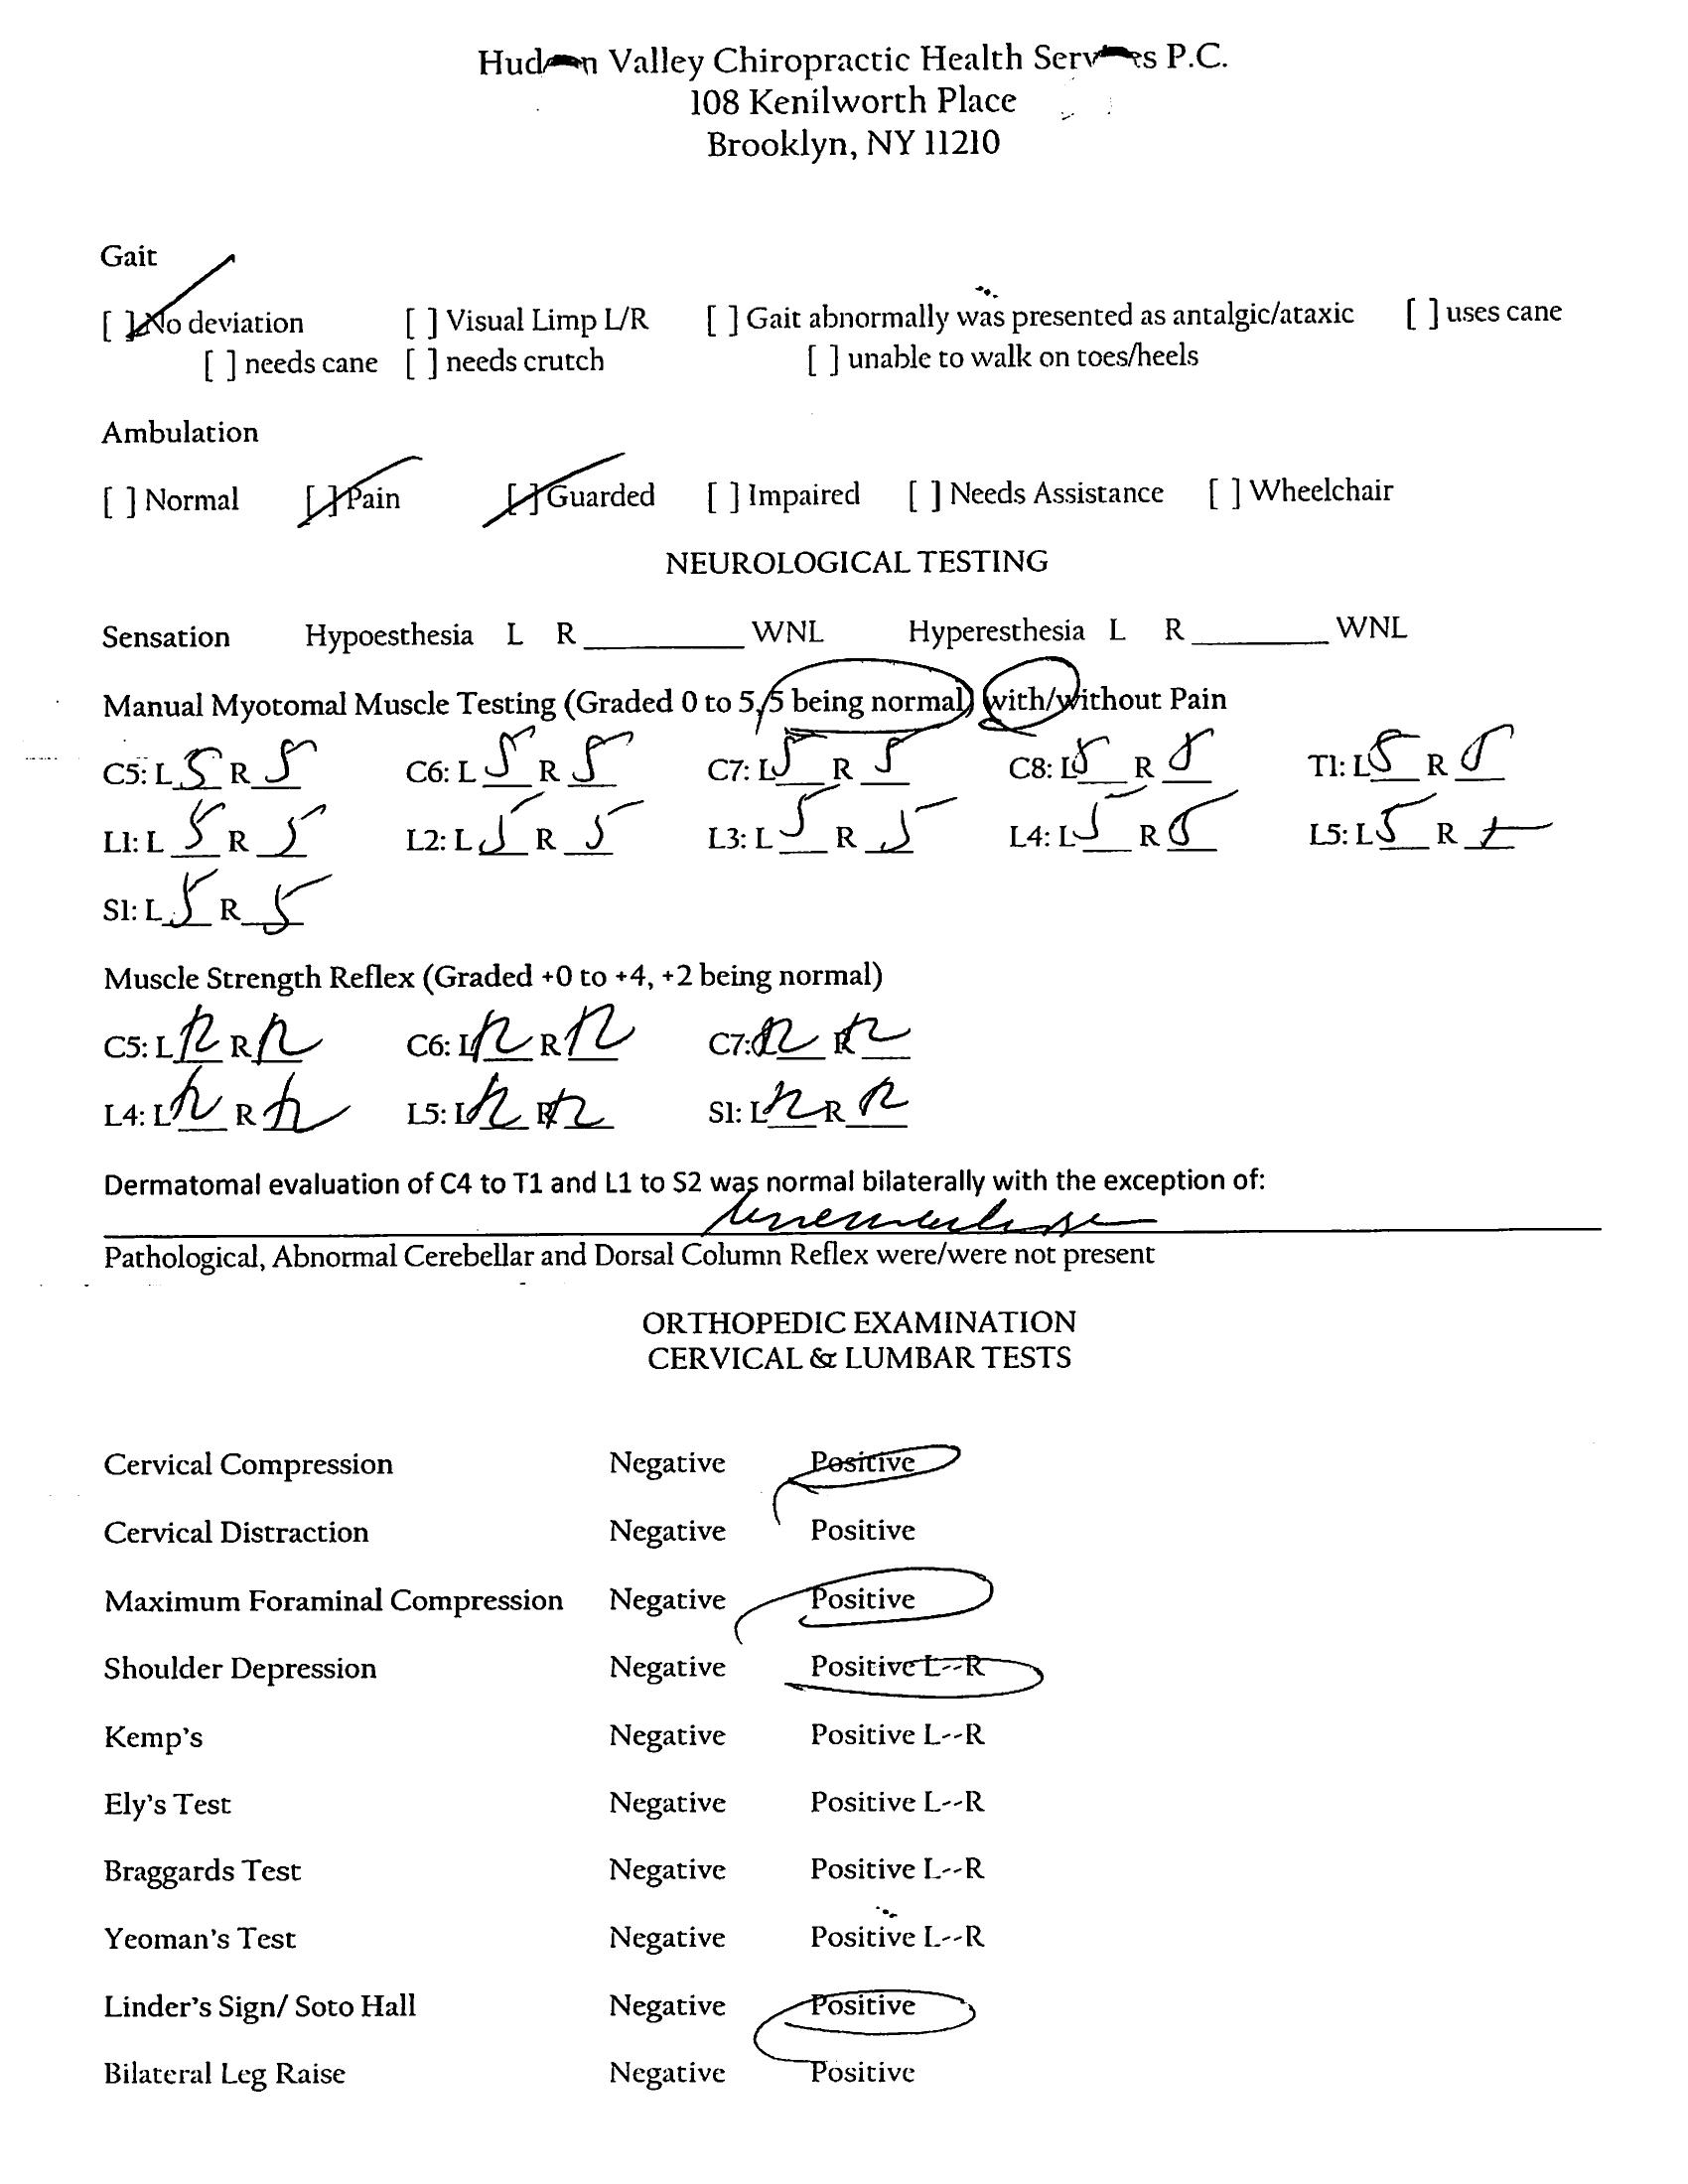 Hudson Valley Chiropractic Health Services P.C.
108 Kenilworth Place
Brooklyn, NY 11210
Gait
[ ] No deviation [ ] Visual Limp L/R [ ] Gait abnormally was presented as antalgic/ataxic [ ] uses cane
[ ] needs cane [ ] needs crutch [ ] unable to walk on toes/heels
Ambulation
[ ] Normal [ ] Pain [ ] Guarded [ ] Impaired [ ] Needs Assistance [ ] Wheelchair
NEUROLOGICAL TESTING
Sensation Hypoesthesia L R__________ WNL Hyperesthesia L R__________ WNL
Manual Myotomal Muscle Testing (Graded 0 to 5, 5 being normal) with/without Pain
C5: L 5 R 5 C6: L 5 R 5 C7: L 5 R 5 C8: L 5 R 5 T1: L 5 R 5
L1: L 5 R 5 L2: L 5 R 5 L3: L 5 R 5 L4: L 5 R 5 L5: L 5 R
S1: L 5 R 5
Muscle Strength Reflex (Graded +0 to +4, +2 being normal)
C5: L R C6: L R C7: L R
L4: L R L5: L R S1: L R
Dermatomal evaluation of C4 to T1 and L1 to S2 was normal bilaterally with the exception of:
Pathological, Abnormal Cerebellar and Dorsal Column Reflex were/were not present
ORTHOPEDIC EXAMINATION
CERVICAL & LUMBAR TESTS
Cervical Compression Negative Positive
Cervical Distraction Negative Positive
Maximum Foraminal Compression Negative Positive
Shoulder Depression Negative Positive L--R
Kemp's Negative Positive L--R
Ely's Test Negative Positive L--R
Braggards Test Negative Positive L--R
Yeoman's Test Negative Positive L--R
Linder's Sign/ Soto Hall Negative Positive
Bilateral Leg Raise Negative Positive